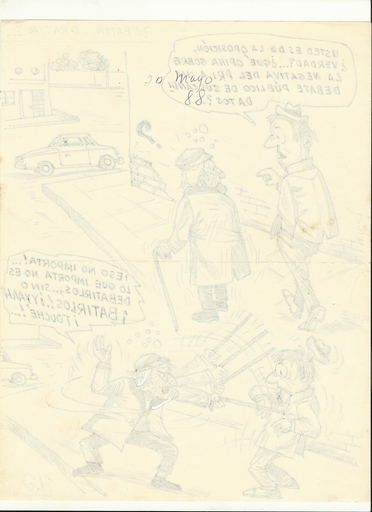 USTED ES DE LA OPOSICIÓN,
¿VERDAD?...¿QUE OPINA SOBRE
LA NEGATIVA DEL PRI AL
DEBATE PÚBLICO DE SUS
DATOS?
20 Mayo
88
¡ESO NO IMPORTA!...
LO QUE IMPORTA NO ES
DEBATIRLOS...SINO
¡BATIRLOS!
¡TOUCHÉ!...